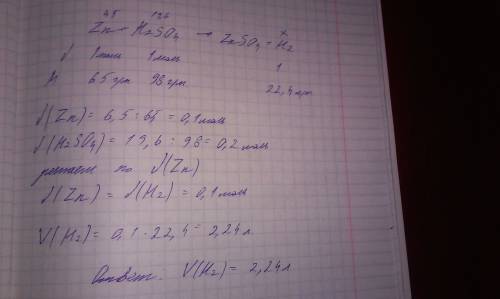 Zn + H2SO4 → ZnSO4 + H2
ν 1 моль 1 моль 1
M 65 гр 98 гр 22,4
ν(Zn) = 6,5 : 65 = 0,1 моль
ν(H2SO4) = 19,6 : 98 = 0,2 моль
решаем по ν(Zn)
ν(Zn) = ν(H2) = 0,1 моль
V(H2) = 0,1 · 22,4 = 2,24 л
Ответ. V(H2) = 2,24 л